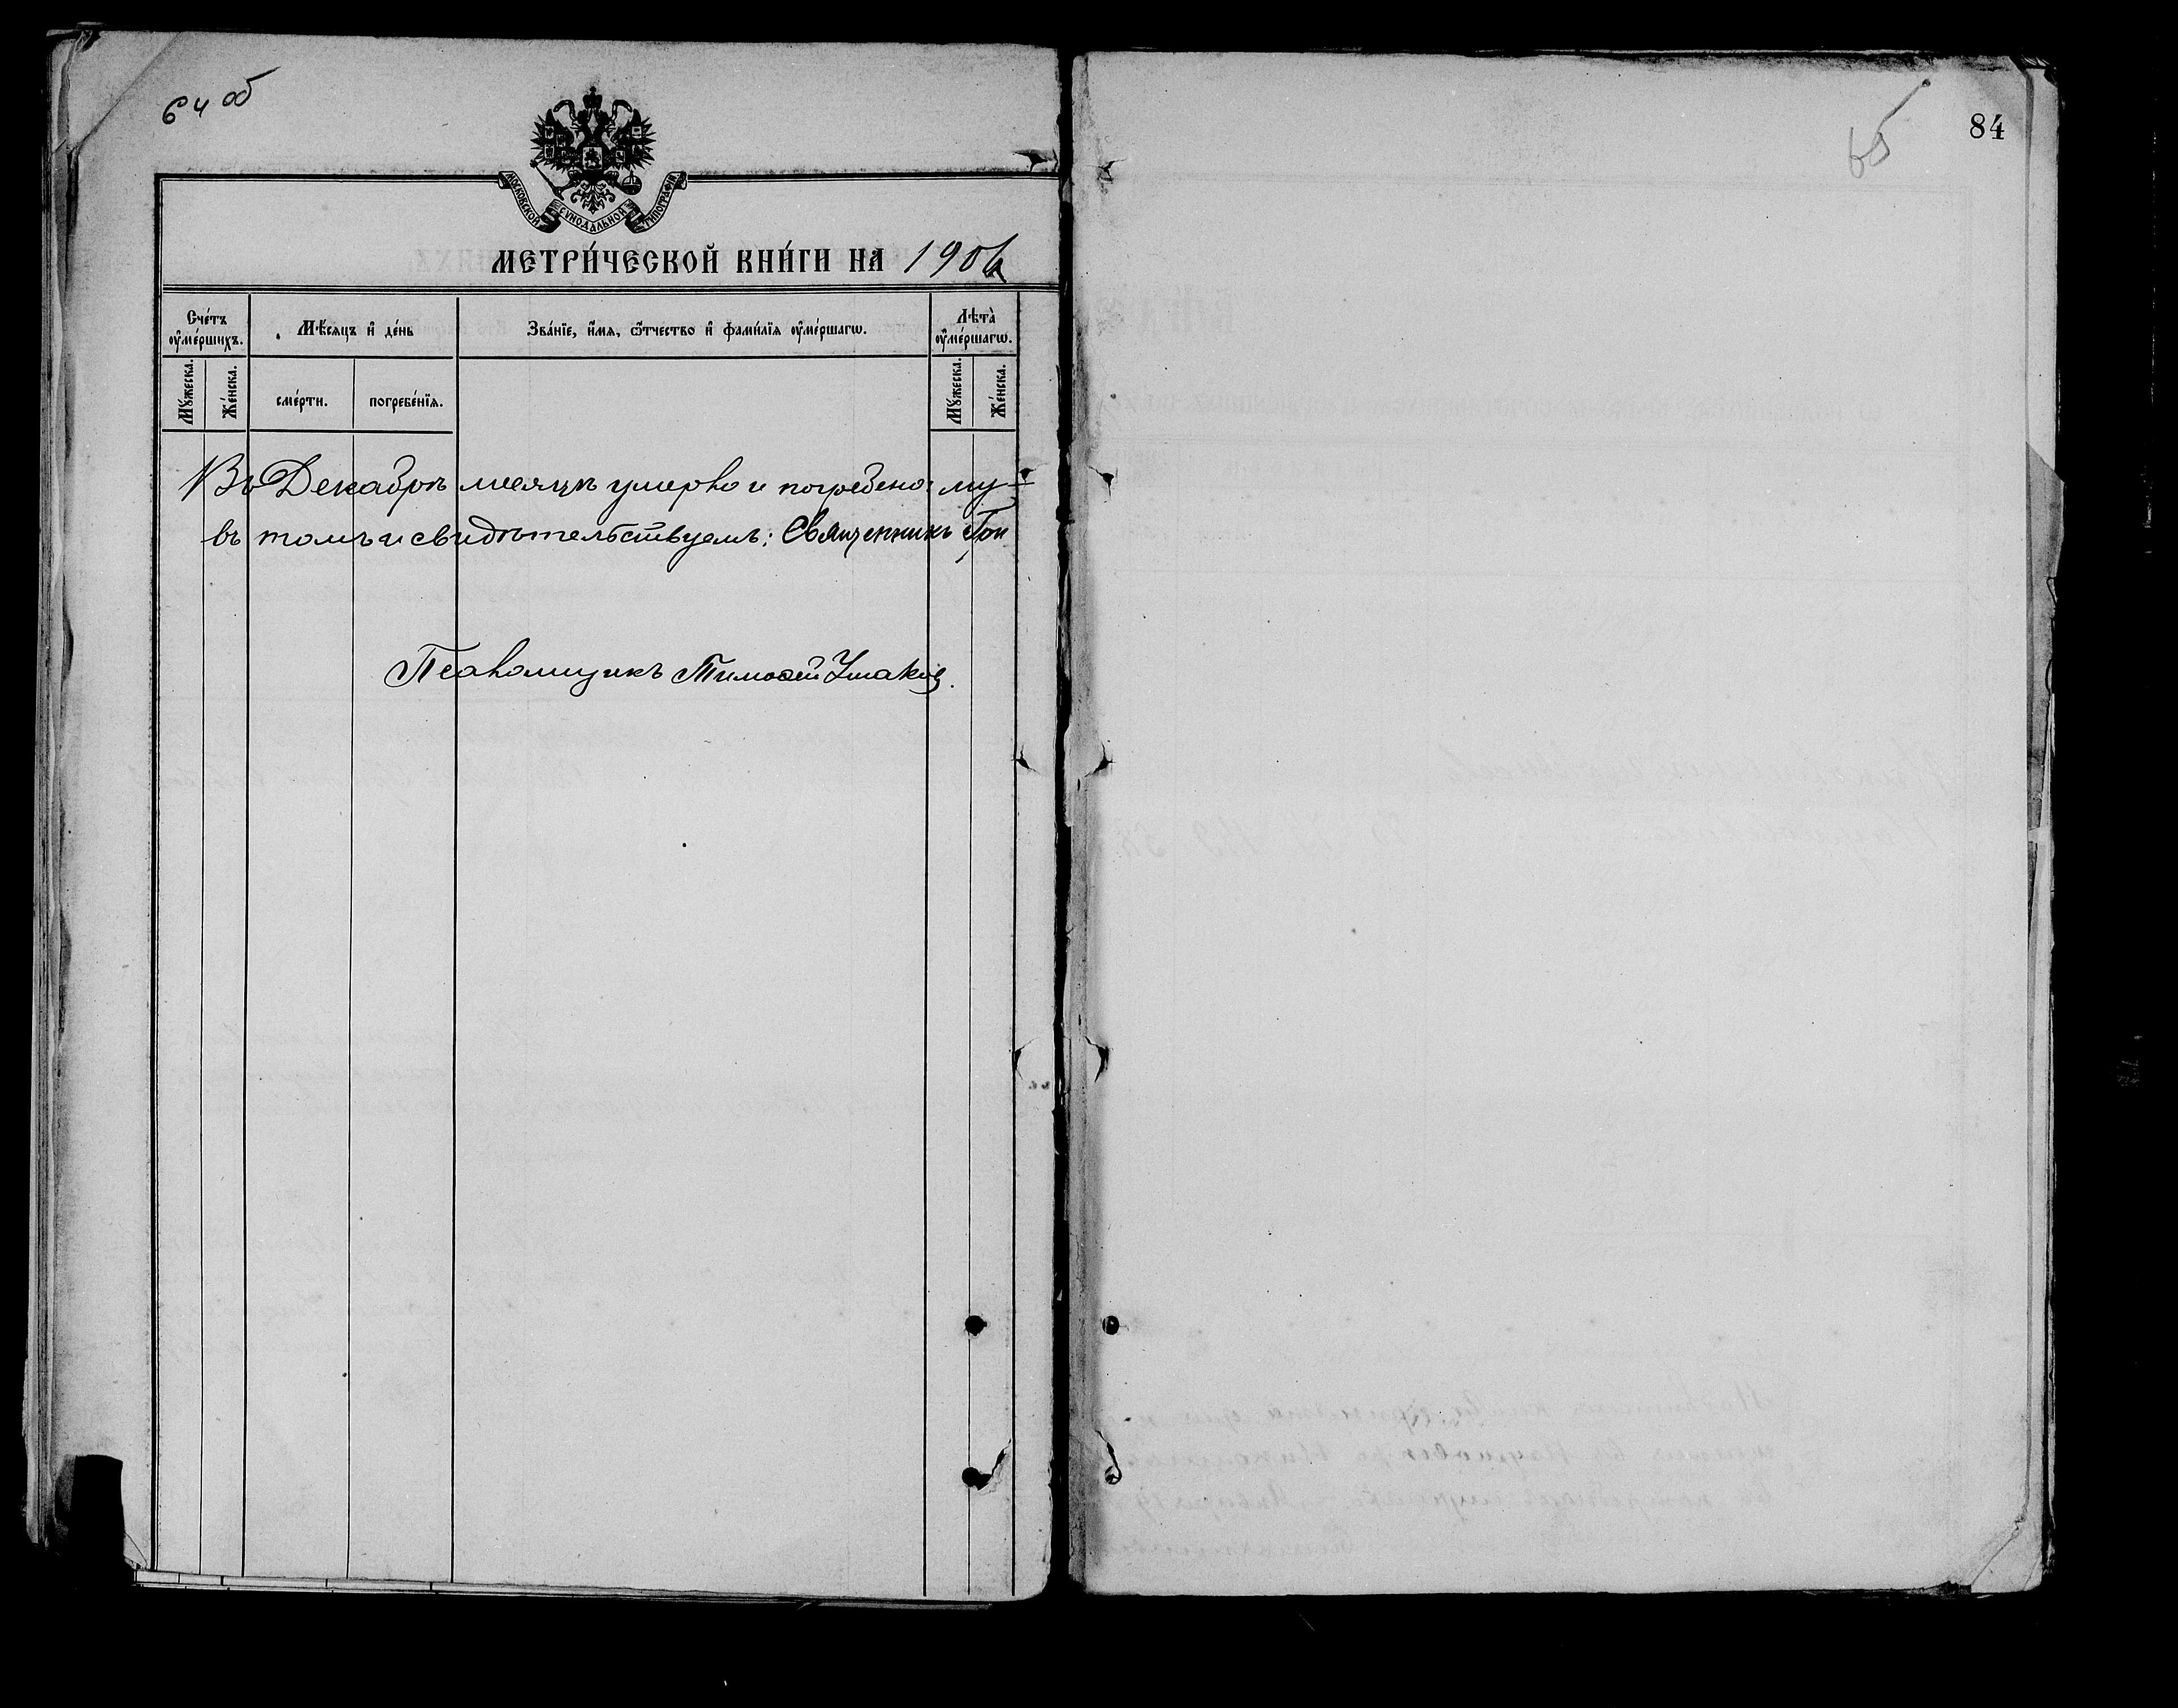 64 об
МОСКОВСКОЙ СѴНОДАЛЬНОЙ ТИПОГРАФІИ
МЕТРИ́ЧЕСКОЙ КНИ́ГИ НА 1906
Сче́тъ ᲂу҆ме́ршихъ.
Мѣ́сяцъ и҆ де́нь
Зва́нїе, и҆́мя, ѻ҆́тчество и҆ фами́лїя ᲂу҆ме́ршагѡ.
Лѣта̀ ᲂу҆ме́ршагѡ.
Мꙋ́жеска.
Же́нска.
сме́рти.
погребе́нїя.
Мꙋ́жеска.
Же́нска.
Въ Декабрѣ месяцѣ умерло и погребено: му-
въ томъ и свидѣтельствуемъ: Священникъ
Псаломщикъ Тимофей Ушаковъ.
65
84